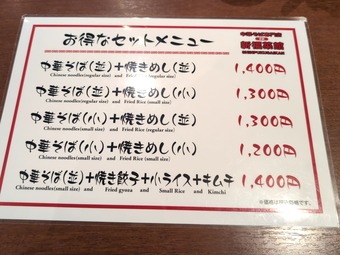 お得なセットメニュー
中華そば専門店
新福菜館
中華そば(並)+焼きめし(並) 1,400円
Chinese noodles(regular size) and Fried Rice (regular size)
中華そば(並)+焼きめし(小) 1,300円
Chinese noodles(regular size) and Fried Rice (small size)
中華そば(小)+焼きめし(並) 1,300円
Chinese noodles(small size) and Fried Rice (regular size)
中華そば(小)+焼きめし(小) 1,200円
Chinese noodles(small size) and Fried Rice (small size)
中華そば(並)+焼き餃子+小ライス+キムチ 1,400円
Chinese noodles(small size) and Fried gyoza and Small Rice and Kimchi